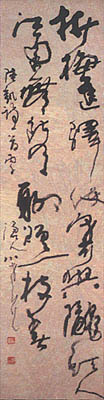 折梅逢驛使寄與隴頭人
江南無所有聊贈一枝春
陸凱詩